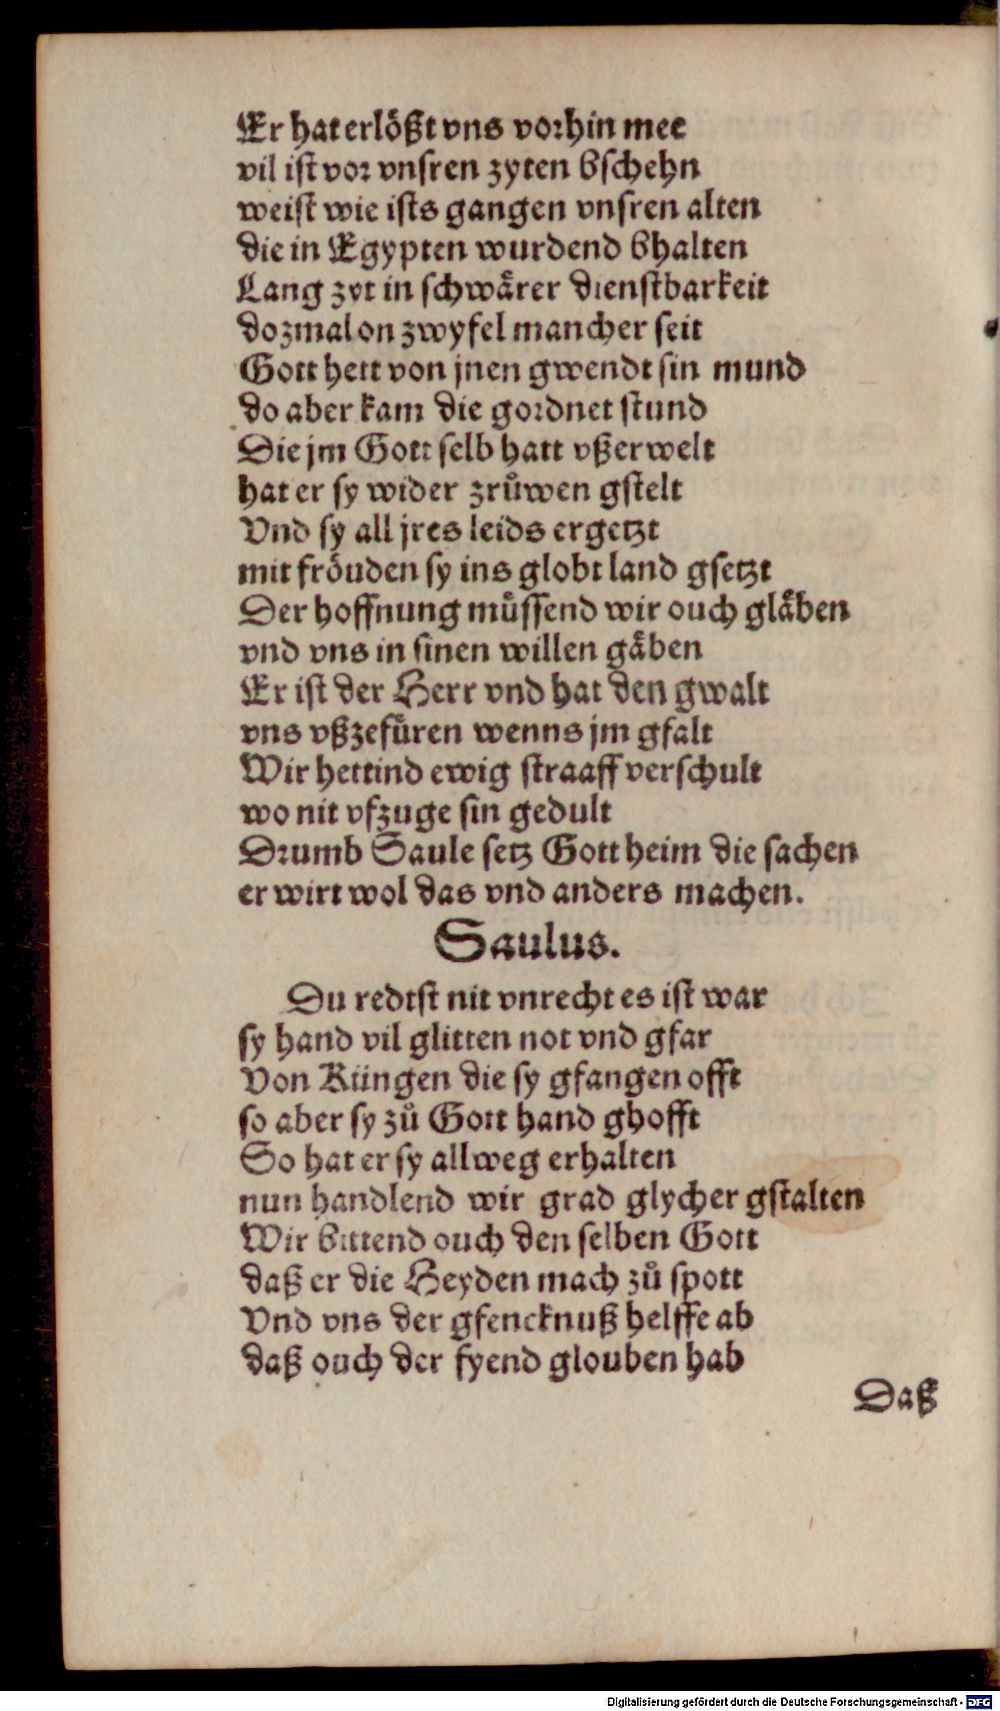 Er hat erlößt vns vorhin mee
vil ist vor vnsren zyten bschehn
weist wie ists gangen vnsren alten
die in Egypten wurdend bhalten
Lang zyt in schwårer dienstbarkeit
dozmal on zwyfel mancher seit
Gott hett von jnen gwendt sin mund
do aber kam die gordnet stund
Die jm Gott selb hatt vßerwelt
hat er sy wider zrůwen gstelt
Vnd sy all jres leids ergetzt
mit fröuden sy ins globt land gsetzt
Der hoffnung müssend wir ouch gläben
vnd vns in sinen willen gäben
Er ist der Herr vnd hat den gwalt
vns vßzefüren wenns jm gfalt
Wir hettind ewig straaff verschult
wo nit vfzuge sin gedult
Drumb Saule setz Gott heim die sachen
er wirt wol das vnd anders machen.
Saulus.
Du redtst nit vnrecht es ist war
sy hand vil glitten not vnd gfar
Von Küngen die sy gfangen offt
so aber sy zů Gott hand ghofft
So hat er sy allweg erhalten
nun handlend wir grad glycher gstalten
Wir bittend ouch den selben Gott
daß er die Heyden mach zů spott
Vnd vns der gfencknuß helffe ab
daß ouch der fyend glouben hab
Daß
Digitalisierung gefördert durch die Deutsche Forschungsgemeinschaft - DFG